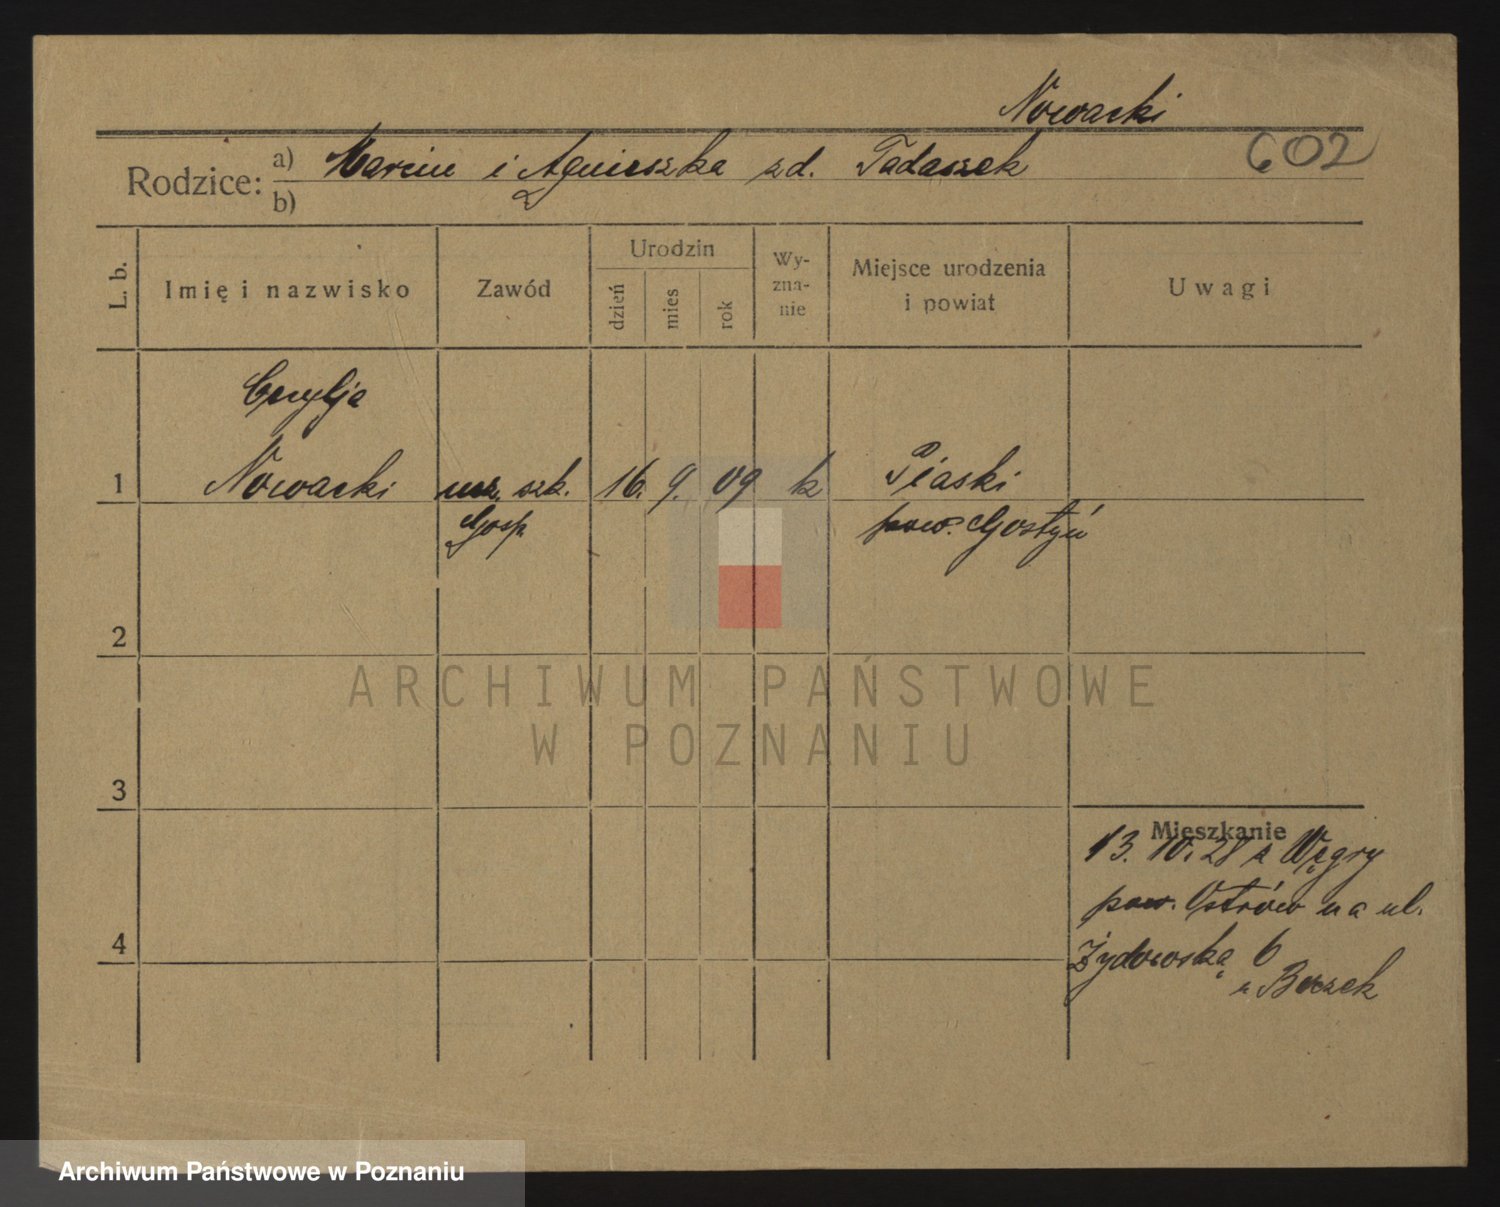 Nowacki
602
Rodzice: a) Marcin i Agnieszka zd. Tadaszek
b)
L. b.
Imię i nazwisko
Zawód
Urodzin
dzień
mies
rok
Wy-
zna-
nie
Miejsce urodzenia
i powiat
Uwagi
Cecylja
1 Nowacki ucz. szk. 16. 9. 09 k Piaski
Gosp. pow. Gostyń
2
ARCHIWUM PAŃSTWOWE
W POZNANIU
3
Mieszkanie
13. 10. 28 z Węgry
pow. Ostrów na ul.
4
Żydowską 6
Archiwum Państwowe w Poznaniu